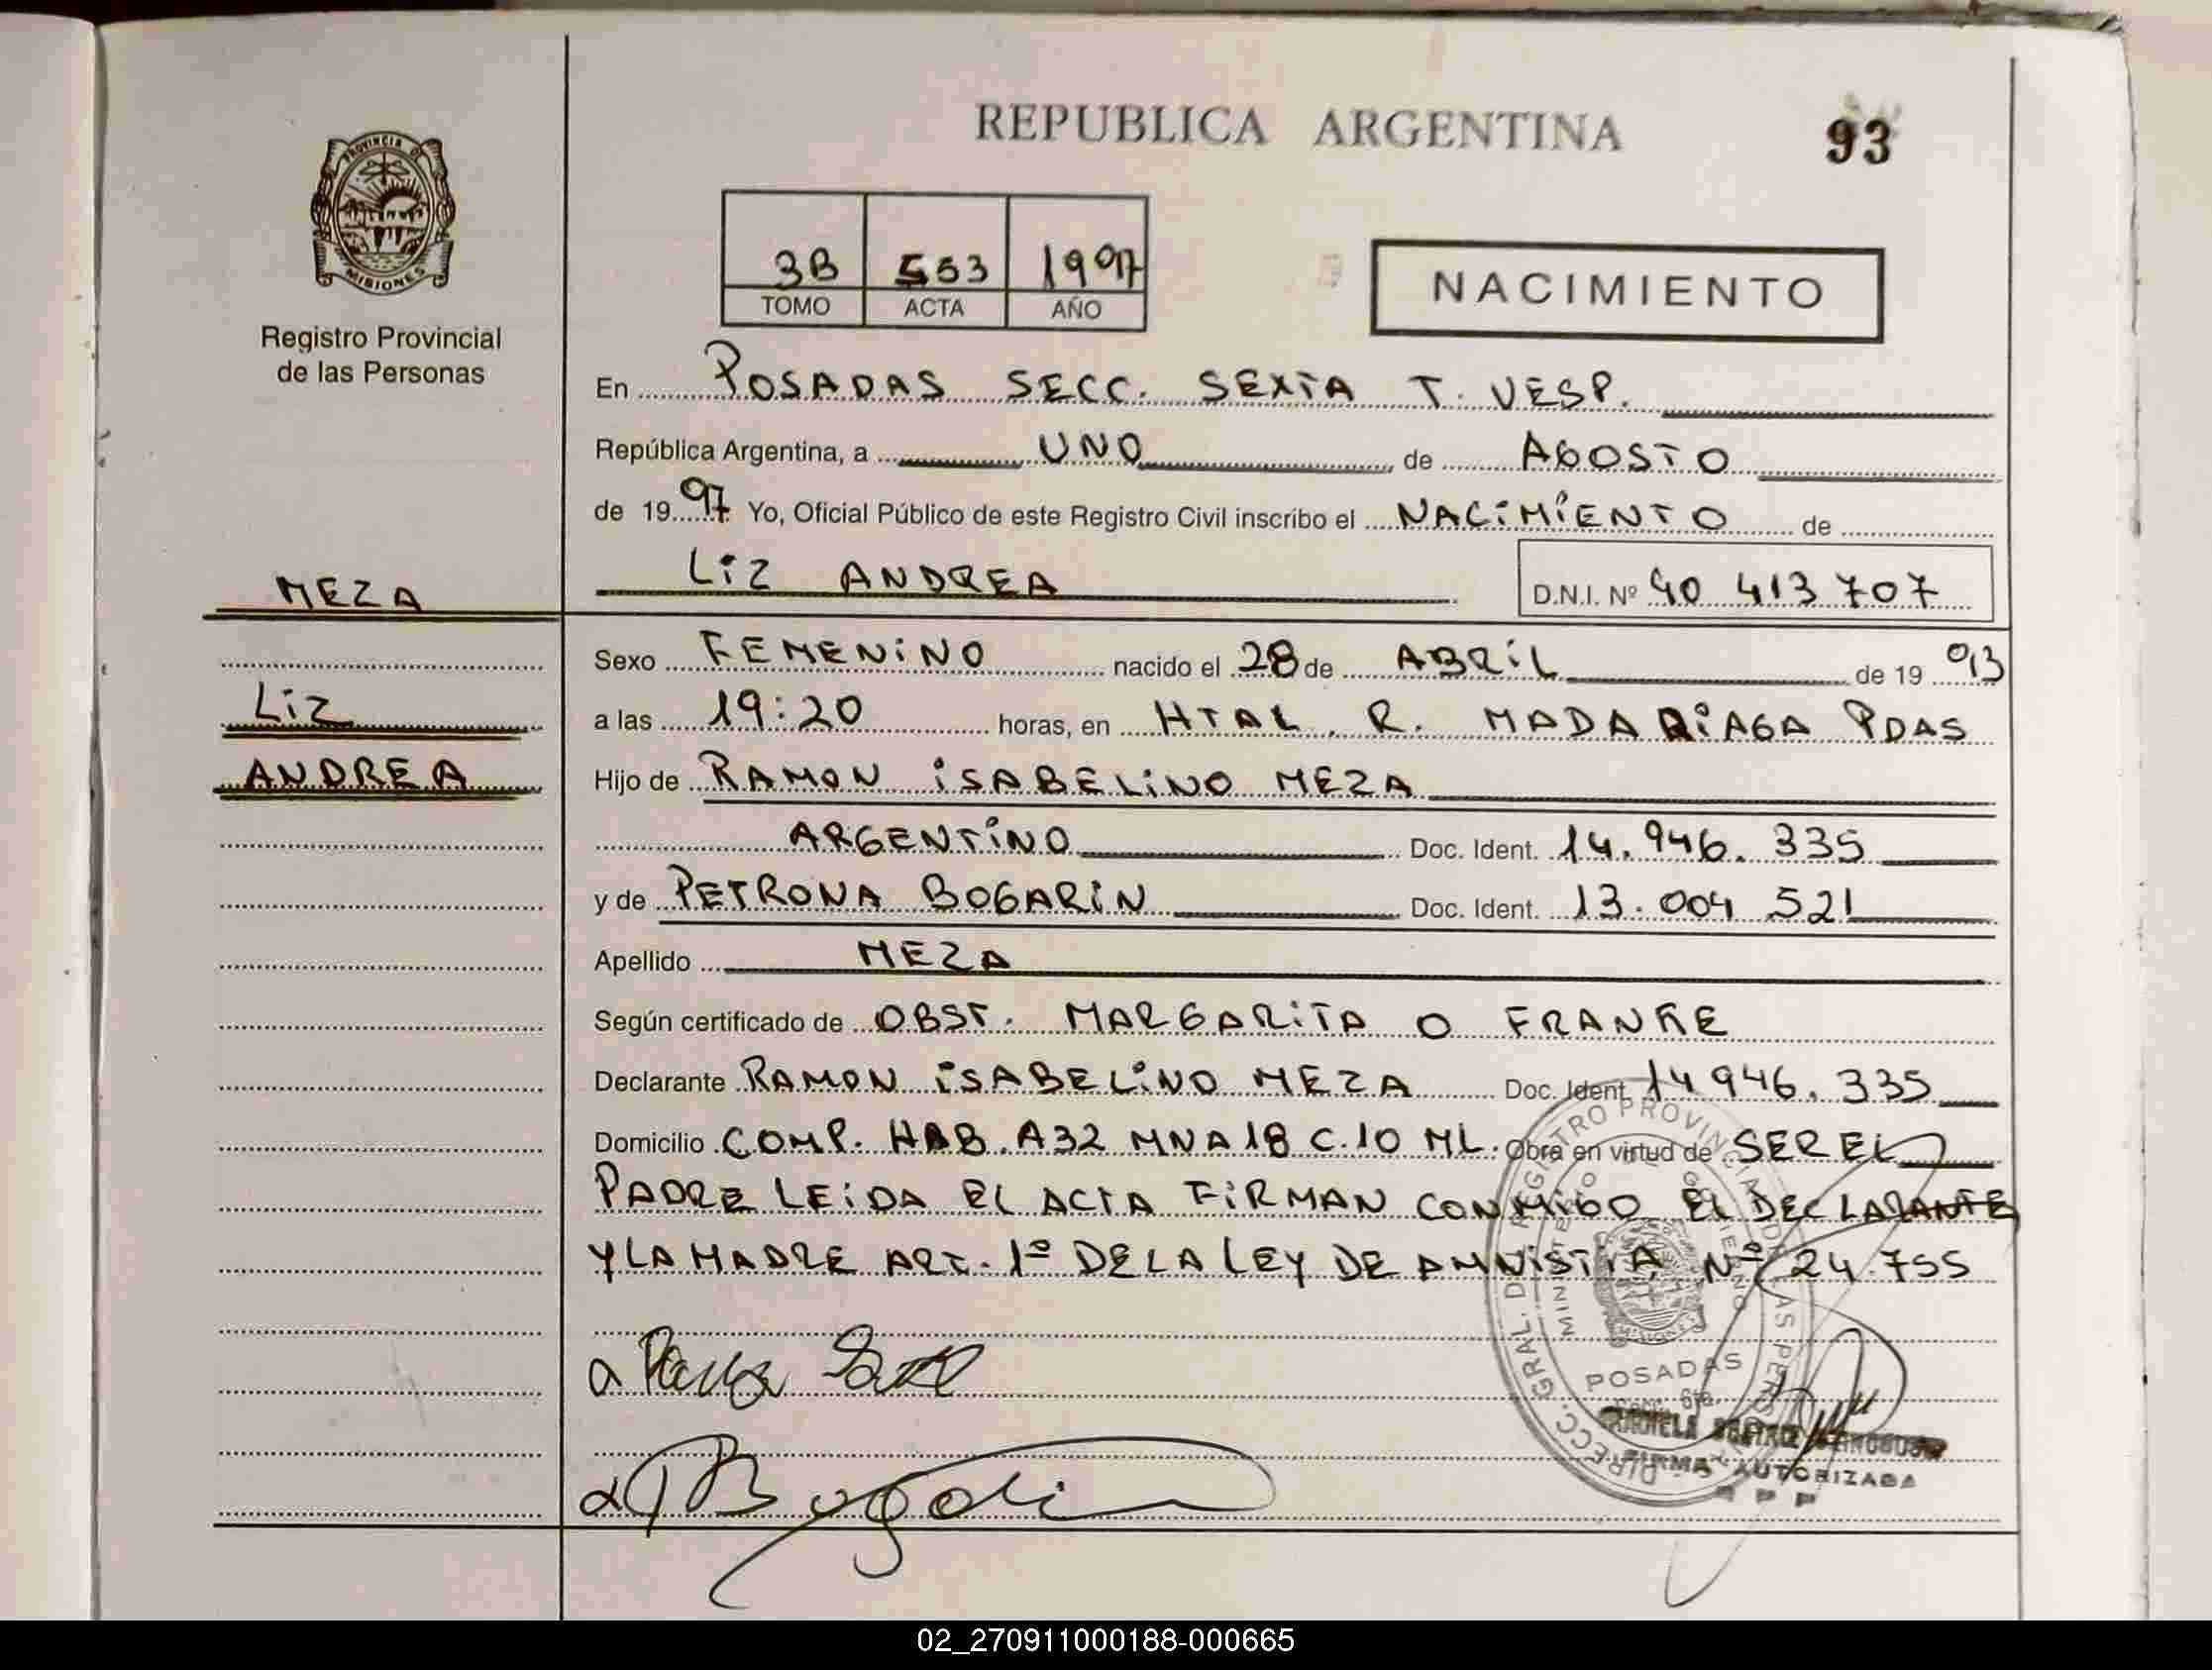 REPUBLICA ARGENTINA
93
PROVINCIA DE
MISIONES
Registro Provincial
de las Personas
3B 553 1997
TOMO ACTA AÑO
NACIMIENTO
En POSADAS SECC. SEXTA T. VESP.
República Argentina, a UNO de AGOSTO
de 1997 Yo, Oficial Público de este Registro Civil inscribo el NACIMIENTO de
LIZ ANDREA D.N.I. Nº 40 413 707
MEZA
LIZ
ANDREA
Sexo FEMENINO nacido el 28 de ABRIL de 1993
a las 19:20 horas, en HTAL. R. MADARIAGA PDAS
Hijo de RAMON ISABELINO MEZA
ARGENTINO Doc. Ident. 14.946.335
y de PETRONA BOGARIN Doc. Ident. 13.004 521
Apellido MEZA
Según certificado de OBST. MARGARITA O FRANKE
Declarante RAMON ISABELINO MEZA Doc. Ident. 14 946.335
Domicilio COMP. HAB. A32 MNA 18 C.10 ML. Obra en virtud de SER EL
PADRE LEIDA EL ACTA FIRMAN CONMIGO EL DECLARANTE
Y LA MADRE ART. 1º DE LA LEY DE AMNISTIA Nº 24.755
DIRECC. GRAL. DEL REGISTRO PROVINCIAL DE LAS PERSONAS
MINISTERIO DE GOBIERNO
MISIONES
POSADAS
FIRMA AUTORIZADA
02_270911000188-000665